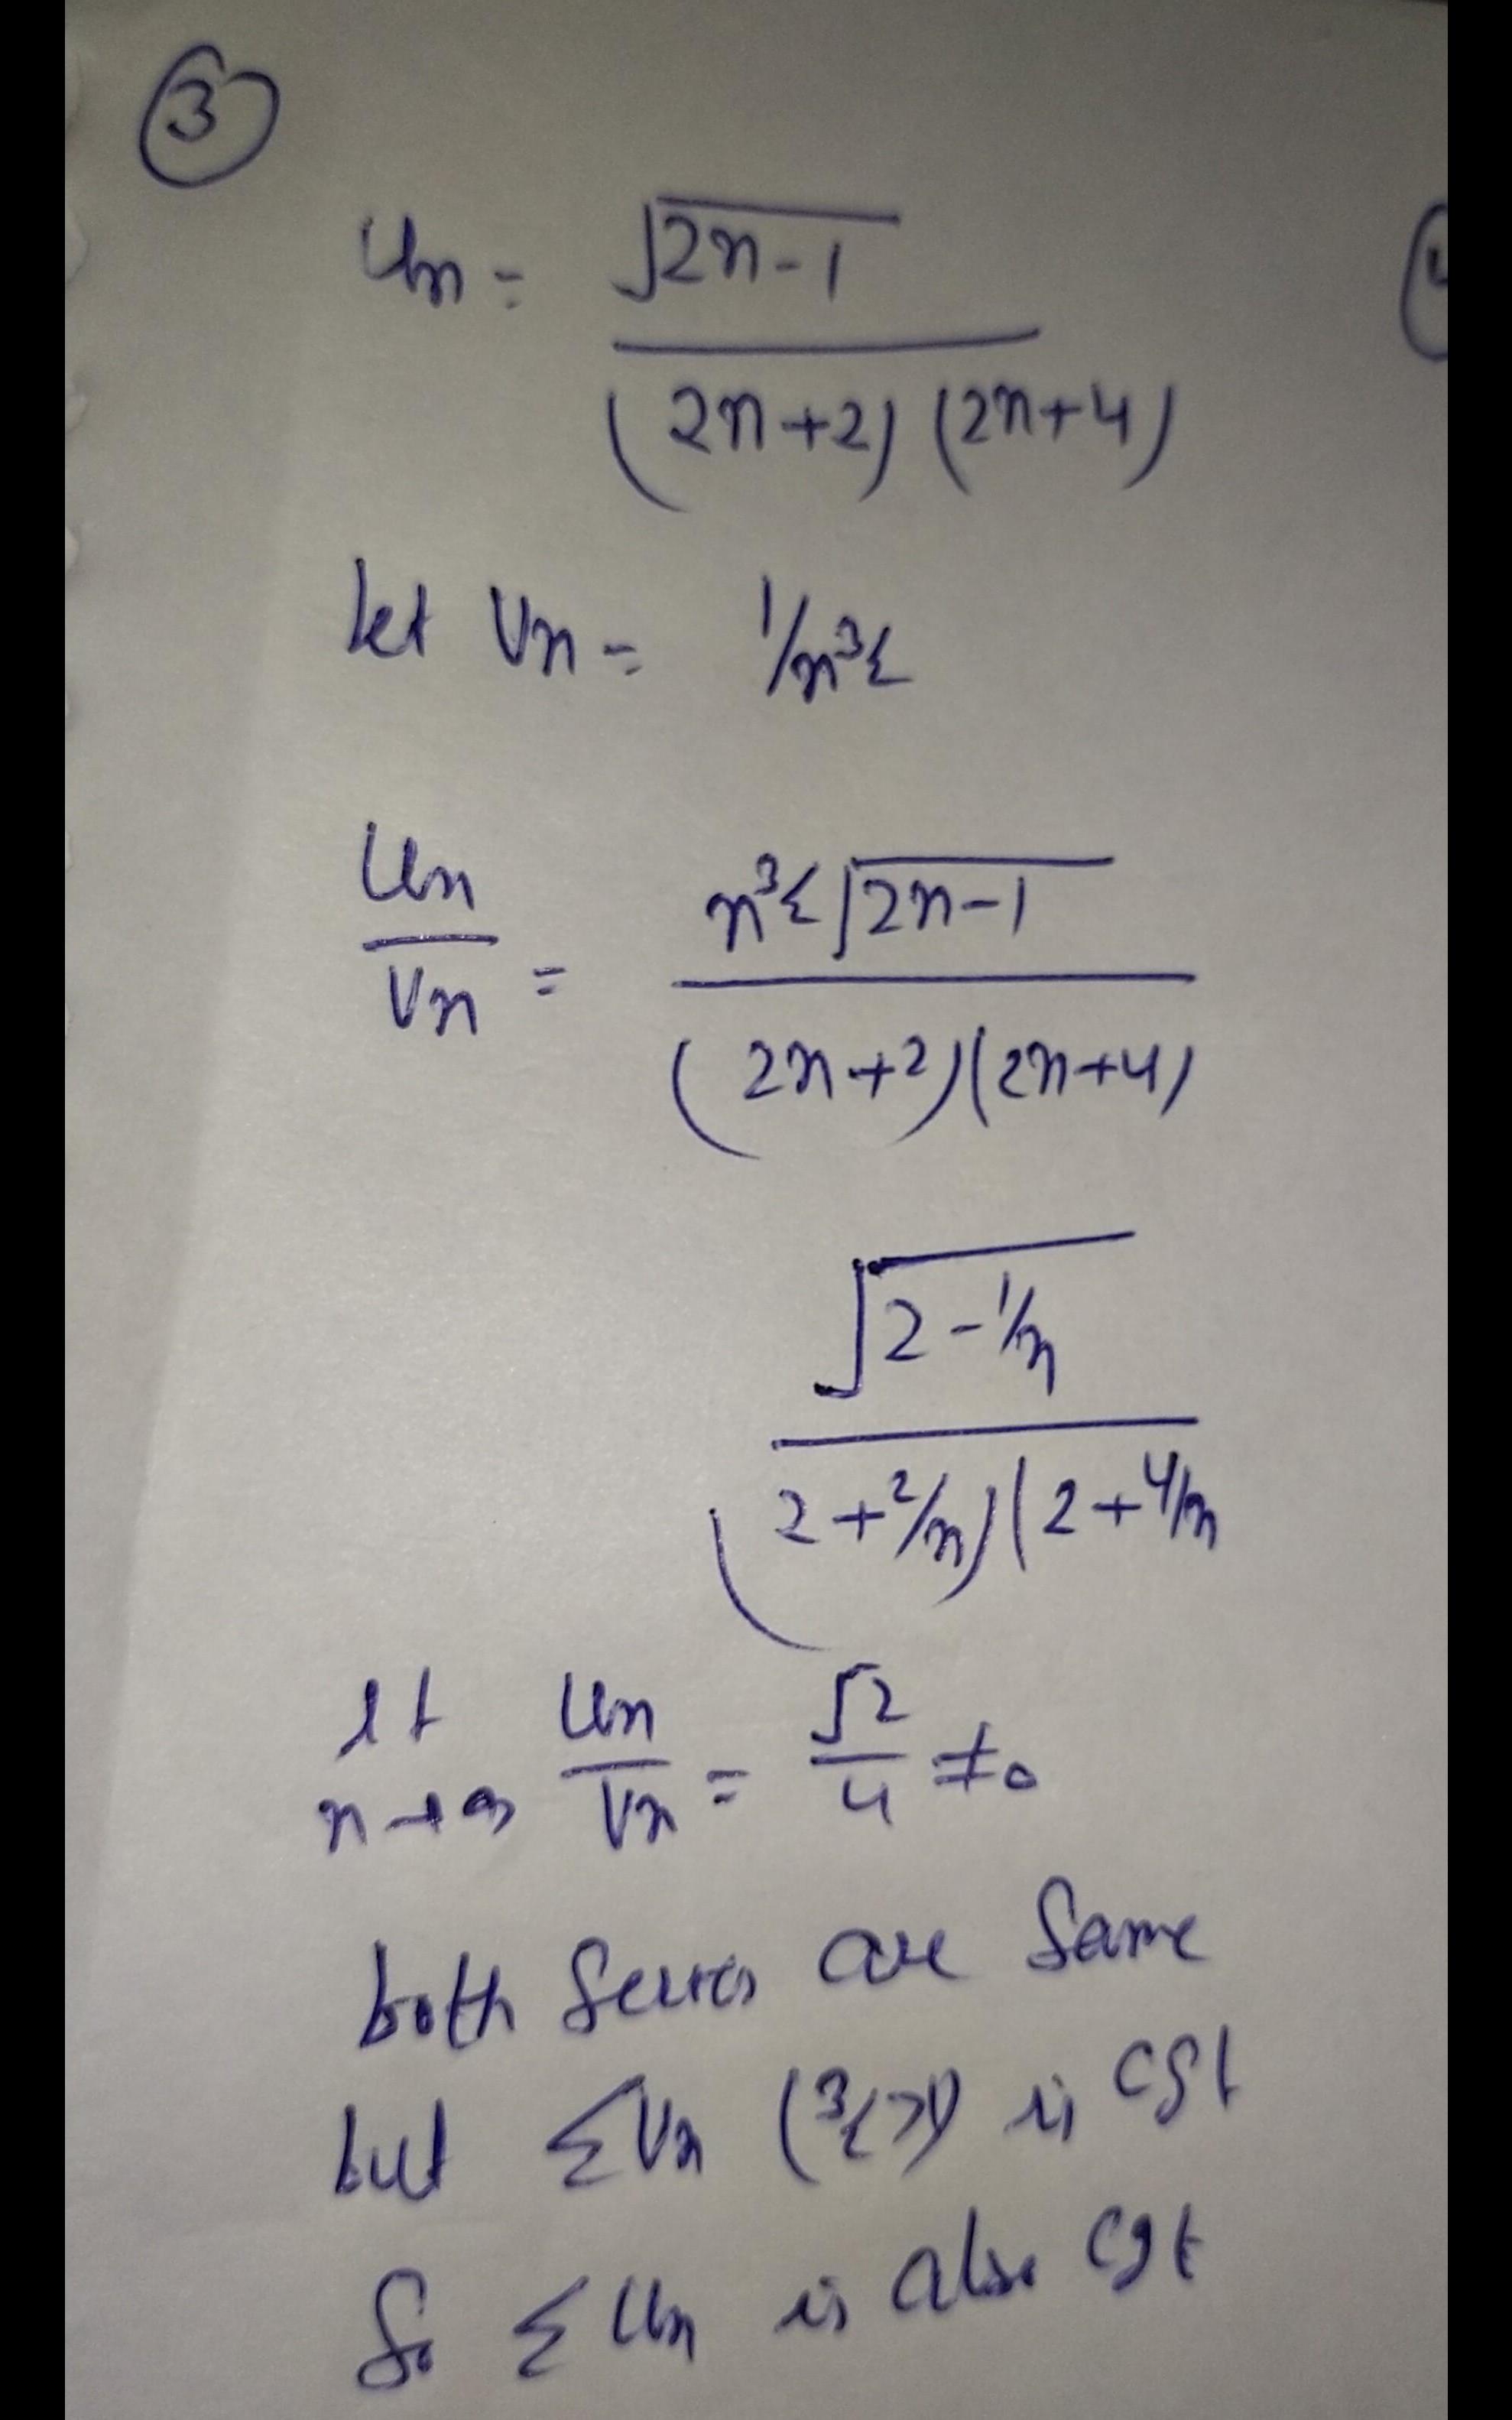 3
Un = √2n-1
(2n+2) (2n+4)
let Vn = 1/n^3/2
Un n^3/2 √2n-1
Vn =
(2n+2)(2n+4)
√2-1/n
(2+2/n)(2+4/n
lt Un = √2 ≠0
n→∞ Vn 4
both Series are Same
but ΣVn (3/2>1) is cgt
So ΣUn is also cgt